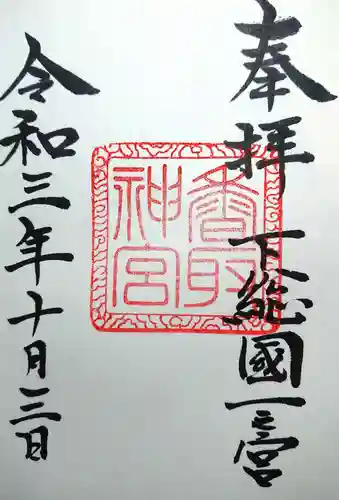 奉拝
下総國一之宮
香取
神宮
令和三年十月三日